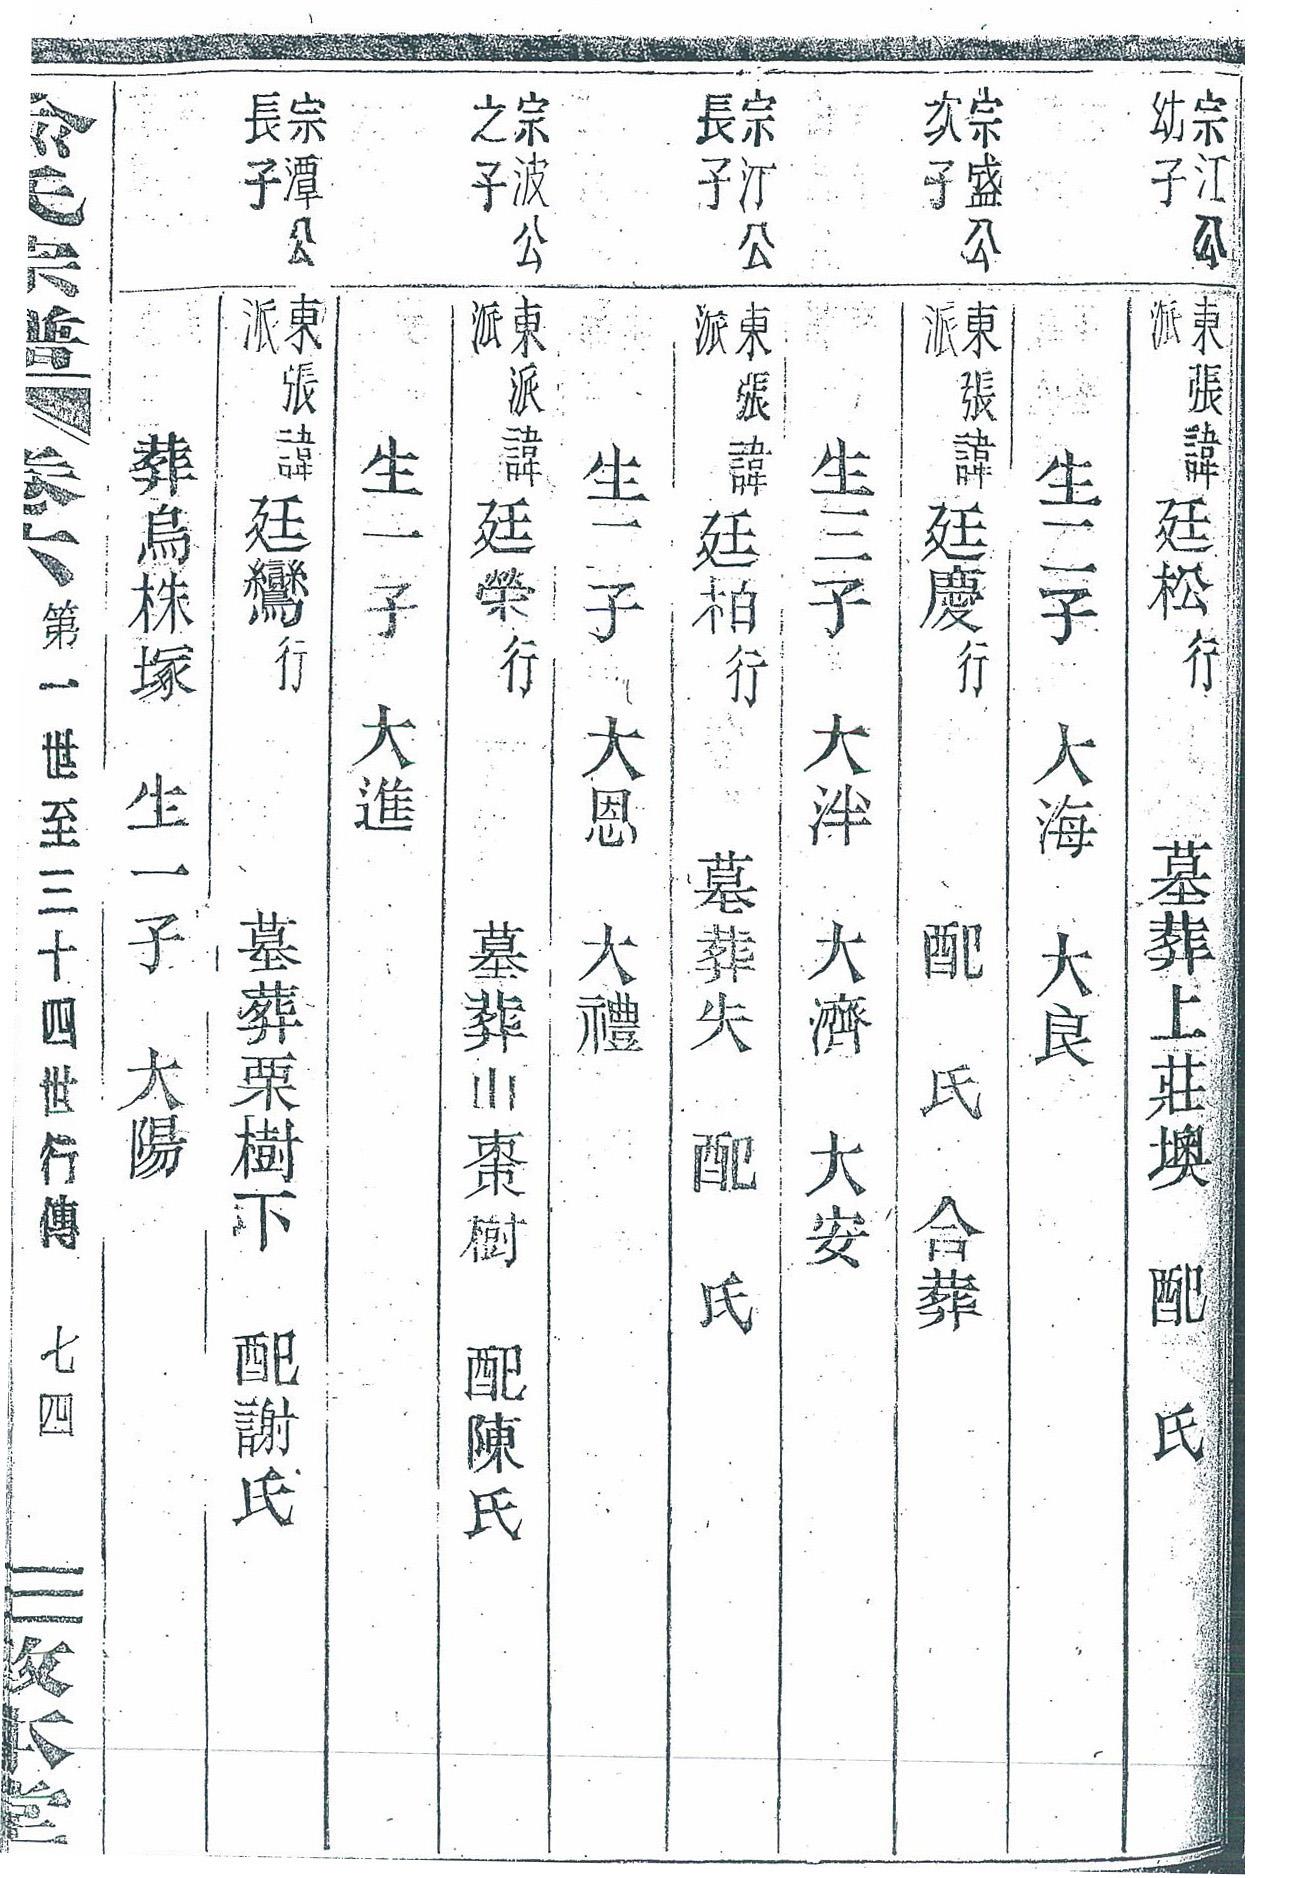 宗江公
幼子
東張派諱廷松行 墓葬上莊墺 配 氏
生二子 大海 大良
宗盛公
次子
東張派諱廷慶行 配 氏 合葬
生三子 大泮 大濟 大安
宗汀公
長子
東張派諱廷柏行 墓葬失 配 氏
生二子 大恩 大禮
宗波公
之子
東派派諱廷榮行 墓葬山棗樹 配陳氏
生一子 大進
宗潭公
長子
東張派諱廷鸞行 墓葬栗樹下 配謝氏
葬烏株塚 生一子 大陽
宗譜 卷六 第一世至三十四世行傳 七四